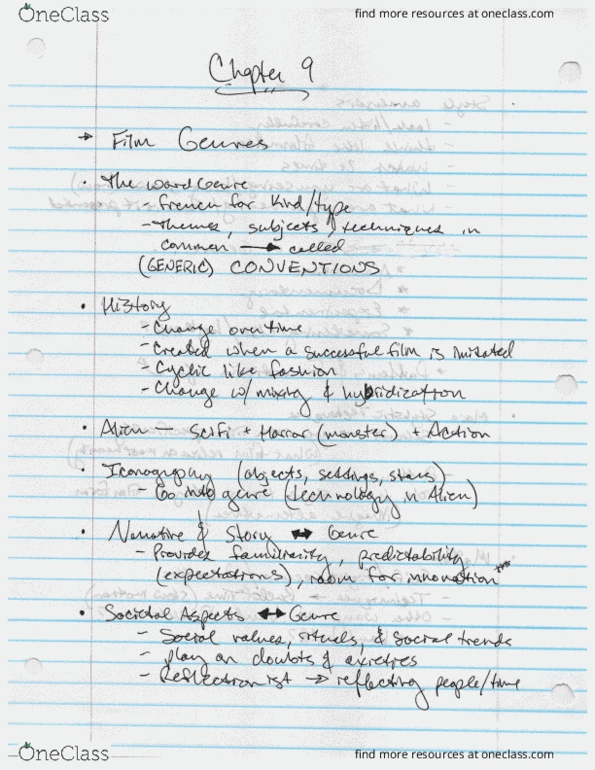 OneClass
find more resources at oneclass.com
Chapter 9
→ Film Genres
• The word Genre
- French for kind/type
- Themes, subjects, techniques in
common → called
(GENERIC) CONVENTIONS
• History
- Change over time
- Created when a successful film is imitated
- Cyclic like fashion
- Change w/ mixing & hybridization
• Alien — Scifi + Horror (monster) + Action
• Iconography (objects, settings, stars)
- Go into genre (technology in Alien)
• Narrative & Story ↔ Genre
- Provides familiarity, predictability
(expectations), room for innovation***
• Societal Aspects ↔ Genre
- Social values, rituals, & social trends
- play on doubts & anxieties
- Reflectionist → reflecting people/time
OneClass
find more resources at oneclass.com